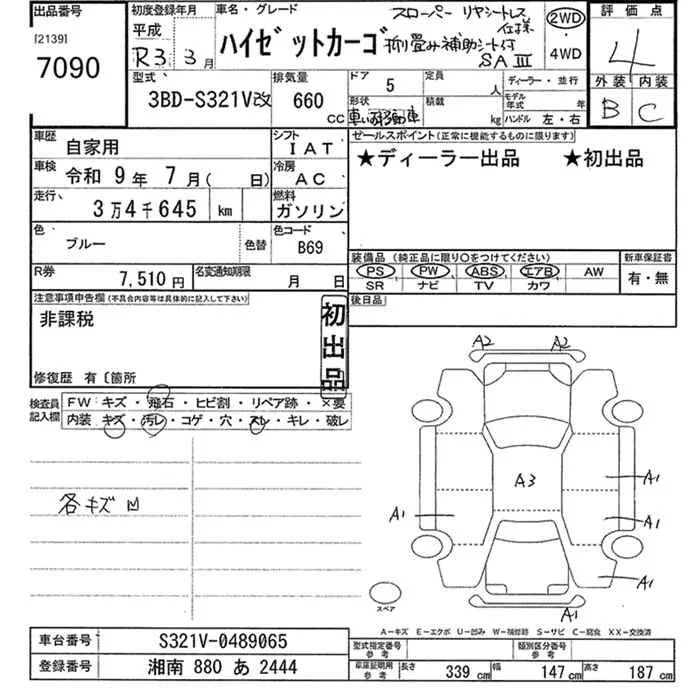 出品番号
[2139]
7090
初度登録年月
平成
R3 3月
車名・グレード
ハイゼットカーゴ
スローパー リヤシートレス仕様
折り畳み補助シート付
SAⅢ
2WD
・
4WD
評価点
4
外装 内装
B C
型式
3BD-S321V改
排気量
660
CC
ドア
5
定員
人
形状
車いす移動車
積載
kg
ディーラー・並行
モデル年式 年
ハンドル 左・右
車歴
自家用
シフト
IAT
車検
令和 9年 7月( 日)
冷房
AC
走行
3万4千645 km
燃料
ガソリン
色
ブルー
色替
色コード
B69
R券
7,510円
名変通知期限
月 日
セールスポイント(正常に機能するものに限ります)
★ディーラー出品 ★初出品
装備品(純正品に限り〇をつけてください)
PS PW ABS エアB AW
SR ナビ TV カワ
新車保証書
有・無
後日品
注意事項申告欄(不具合内容等は具体的に記入して下さい)
非課税
初出品
修復歴 有〔箇所
検査員記入欄
FW キズ・飛石・ヒビ割・リペア跡・×要
内装 キズ・汚レ・コゲ・穴・スレ・キレ・破レ
各キズ凹
A2 A2
A3
A1
A1
A1
A1
A1
スペア
A-キズ E-エクボ U-凹み W-補修跡 S-サビ C-腐食 XX-交換済
車台番号
S321V-0489065
登録番号
湘南 880 あ 2444
型式指定番号
参考
類別区分番号
参考
車庫証明用
参考
長さ 339 cm 幅 147 cm 高さ 187 cm